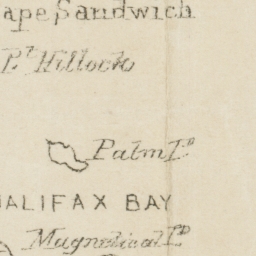 ape Sandwich
Pt Hillock
Palm Id
HALIFAX BAY
Magnetical Id